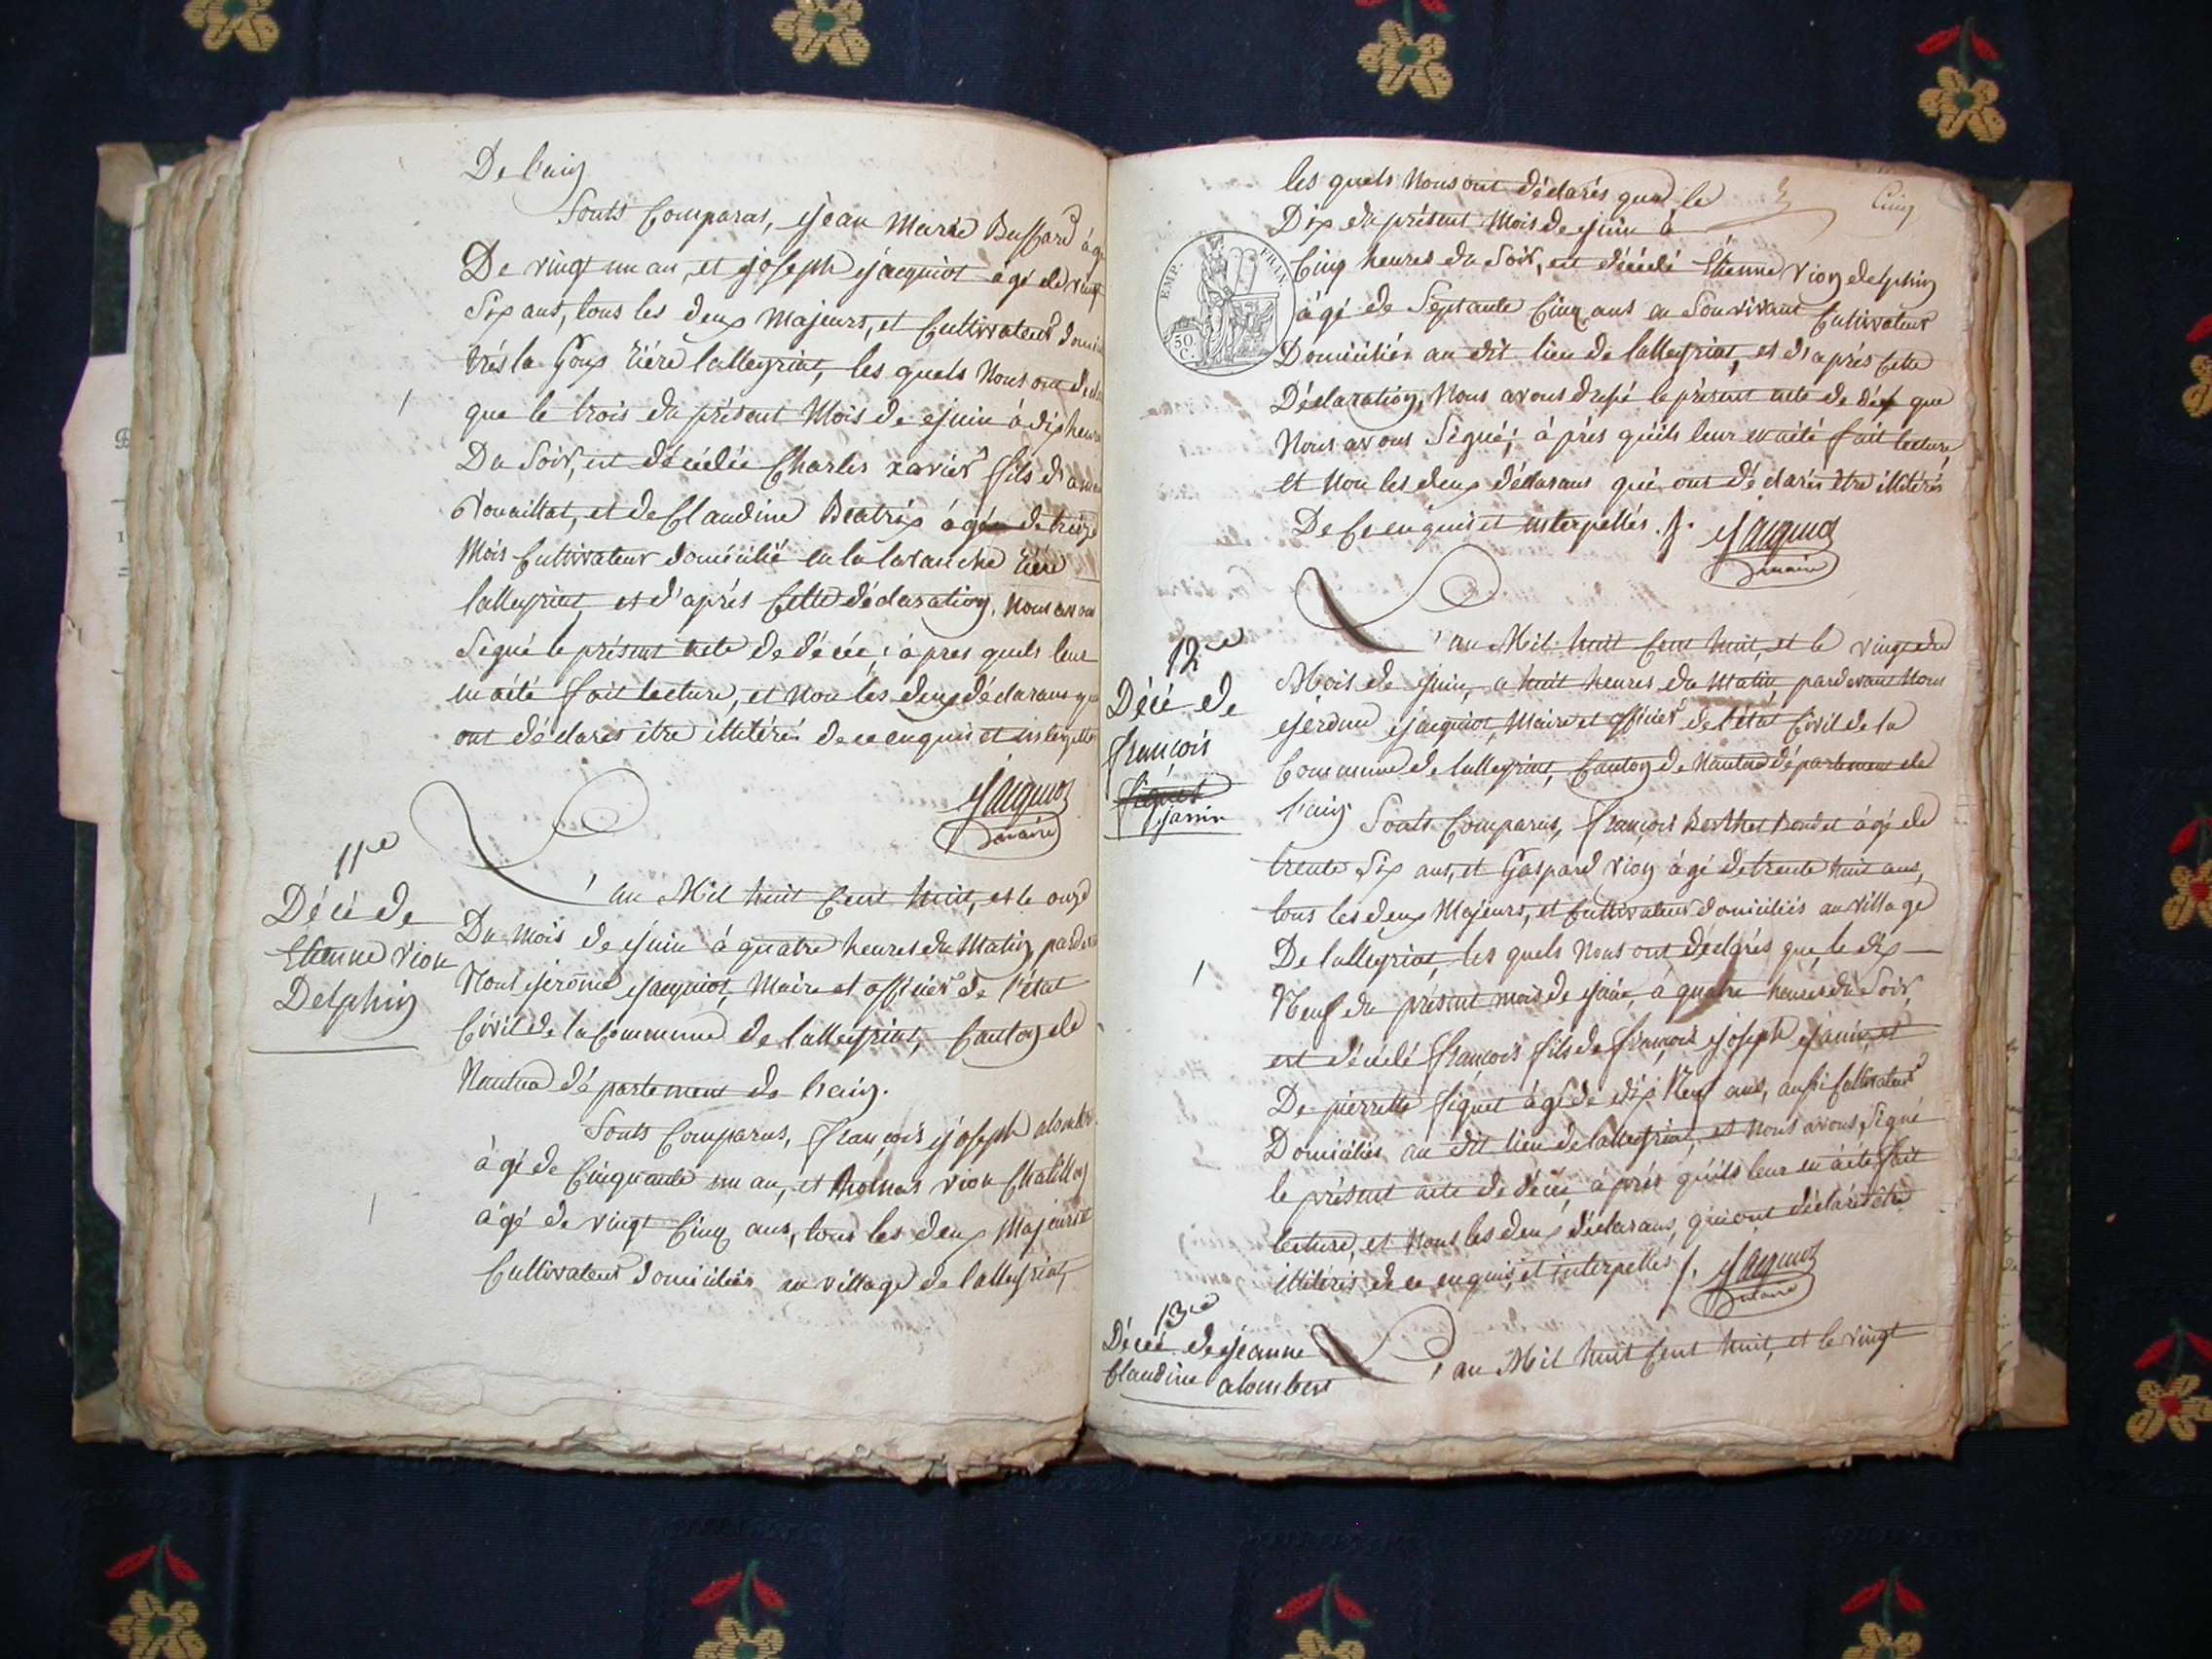 De l'ain
Sonts Comparus, Jean Marie Buffard âgé
De vingt un an, et joseph jacquiot âgé de vingt
Six ans, tous les deux Majeurs, et Cultivateurs
la Goux riére lalleyriat, les quels Nous ont
que le trois du présent Mois de juin à dix heures
Du Soir, est décédée Charles xavier fils
et de Claudine Beatrix âgé de treize
Mois Cultivateur domicilié en la lavanche riére
lalleyriat, et d'aprés Cette déclaration, Nous avons
Signé le présent acte de décée; àpres quels leur
en aété fait lecture, et Non les deux déclarans qui
ont déclarés être illitérés de ce enquis et interpellés
jacquiot
maire
11e
Décé de
Etienne Vion
Delphin
L'an Mil huit Cent huit, et le onze
Du Mois de juin à quatre heures du Matin, pardevant
Nous jerôme jacquiot, Maire et officier de l'état
Civil de la Commune de lalleyriat, Canton de
Nantua département de l'ain.
Sonts Comparus, françois joseph alombert
âgé de Cinquante un an, et thomas vion Chatillon
âgé de vingt Cinq ans, tous les deux Majeurs et
Cultivateurs domiciliés au village de lalleyriat,
les quels Nous ont déclarés que le
Cinq
Dix du présent Mois de juin à
EMP. FRAN.
50 C.
Cinq heures du Soir, est décédé Etienne Vion delphin
âgé de Septante Cinq ans en Sonvivant Cultivateur
Domiciliés au dit lieu de lalleyriat, et d'aprés Cette
Déclaration, Nous avons dressé le présent acte de que
Nous avons Signé; àprés quils leur en aété fait lecture,
et Non les deux déclarans qui ont déclarés être illitérés
De Ce enquis et interpellés. jacquiot
maire
12e
Décé de
françois
figuet
janin
L'an Mil huit Cent huit, et le vingt du
Mois de juin, a huit heures du Matin, pardevant Nous
jerôme jacquiot, Maire et officier de l'état Civil de la
Commune de lalleyriat, Canton de Nantua département de
l'ain Sonts Comparus, françois Berthet Bondet âgé de
trente Six ans, et Gaspard Vion âgé de trente huit ans,
tous les deux Majeurs, et Cultivateurs domiciliés au village
De lalleyriat, les quels Nous ont déclarés que, le dix
Neuf du présent mois de juin, à quatre heures du Soir,
est décédé françois fils de françois joseph janin, et
De pierrette figuet âgé de dix Neuf ans, aussi Cultivateur
Domiciliés au dit lieu de lalleyriat, et Nous avons Signé
le présent acte de décée, àprés quils leur en aété fait
lecture, et Nons les deux déclarans, qui ont déclarés être
illitérés de ce enquis, et interpellés. jacquiot
maire
13e
Décée de jeanne
Claudine alombert
L'an Mil huit Cent huit, et le vingt